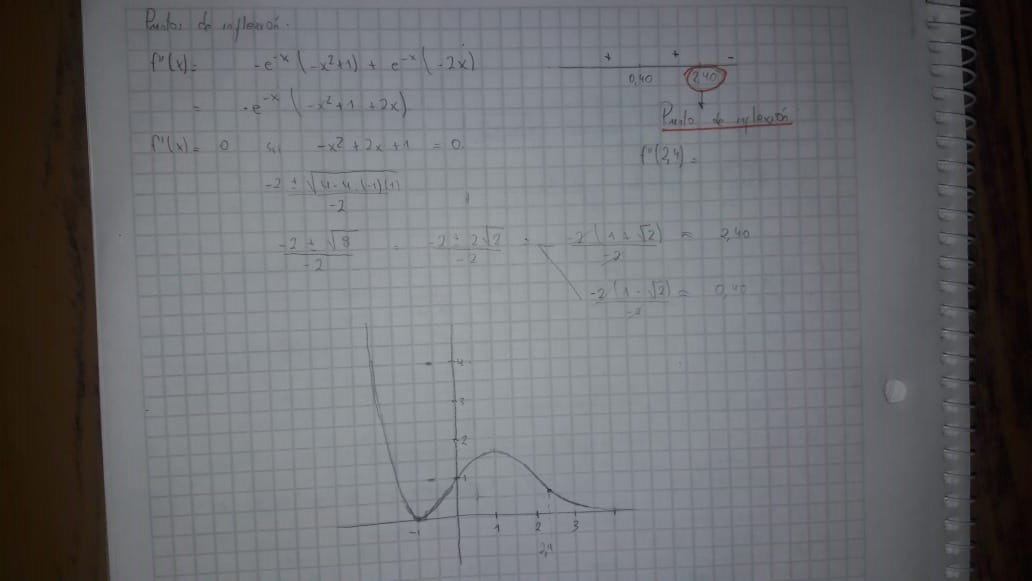 Puntos de inflexión.
f''(x) = -e^-x (-x²+1) + e^-x (-2x)
= -e^-x (-x²+1+2x)
f''(x) = 0 -x²+2x+1 = 0.
-2 ± √(4-4·(-1)(1)) / -2
-2 ± √8 / -2 = -2 ± 2√2 / -2 = -2(1+√2) / -2 ≈ 2,40
-2(1-√2) / -2 ≈ 0,40
+ + -
0,40 2,40
Punto de inflexión
f''(2,4) =
4
3
2
1
-1 1 2 3
2,4